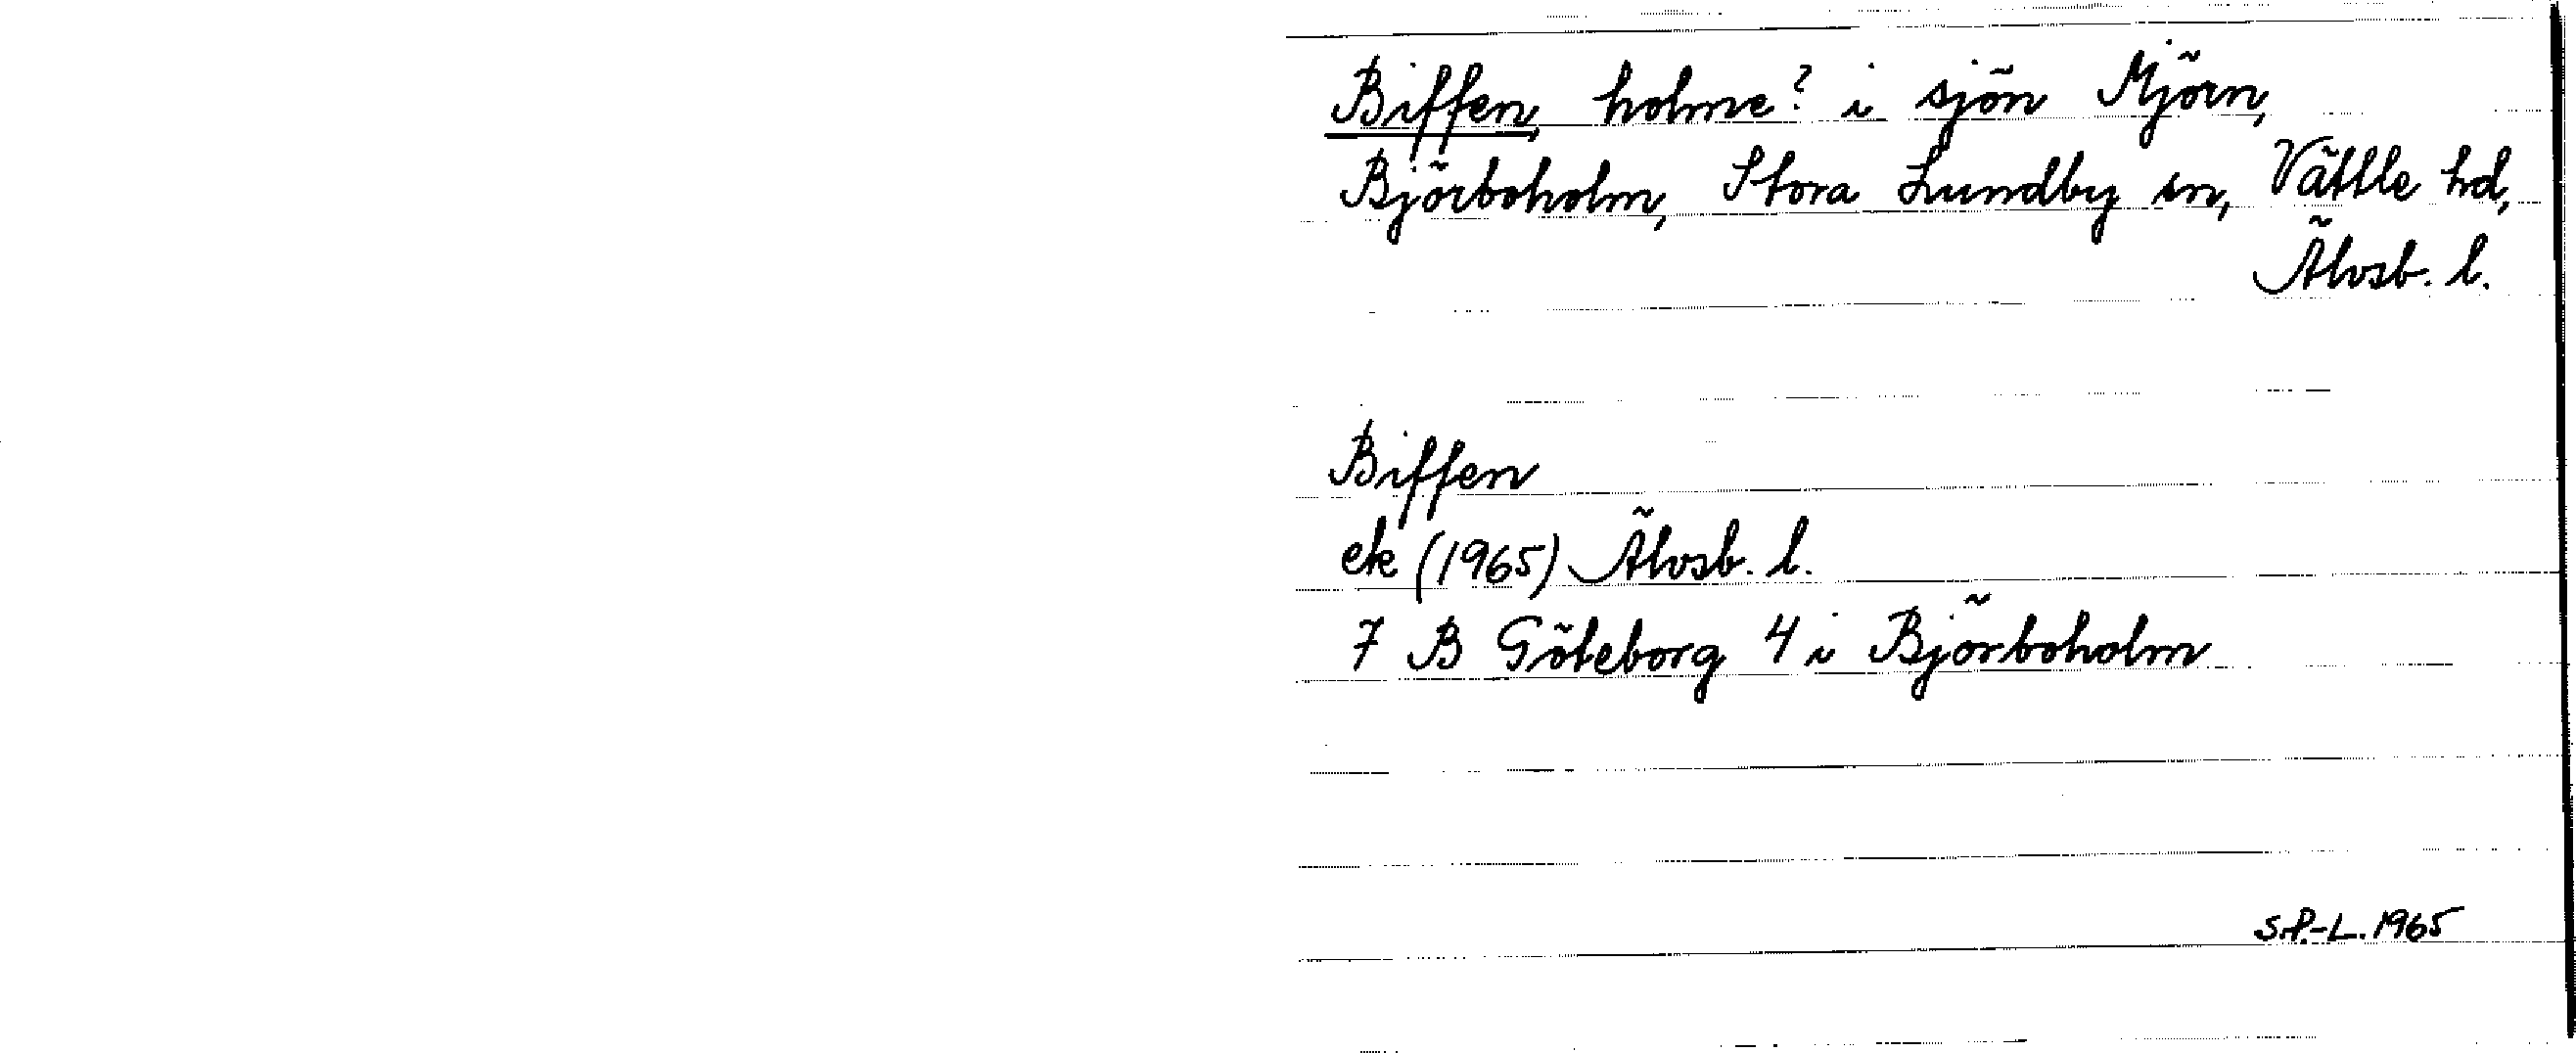 Biffen, holme? i sjön Mjörn,
Björboholm, Stora Lundby sn, Vättle hd,
Älvsb. l.
Biffen
ek (1965) Älvsb. l.
7 B Göteborg 4 i Björboholm
S.P.-L. 1965